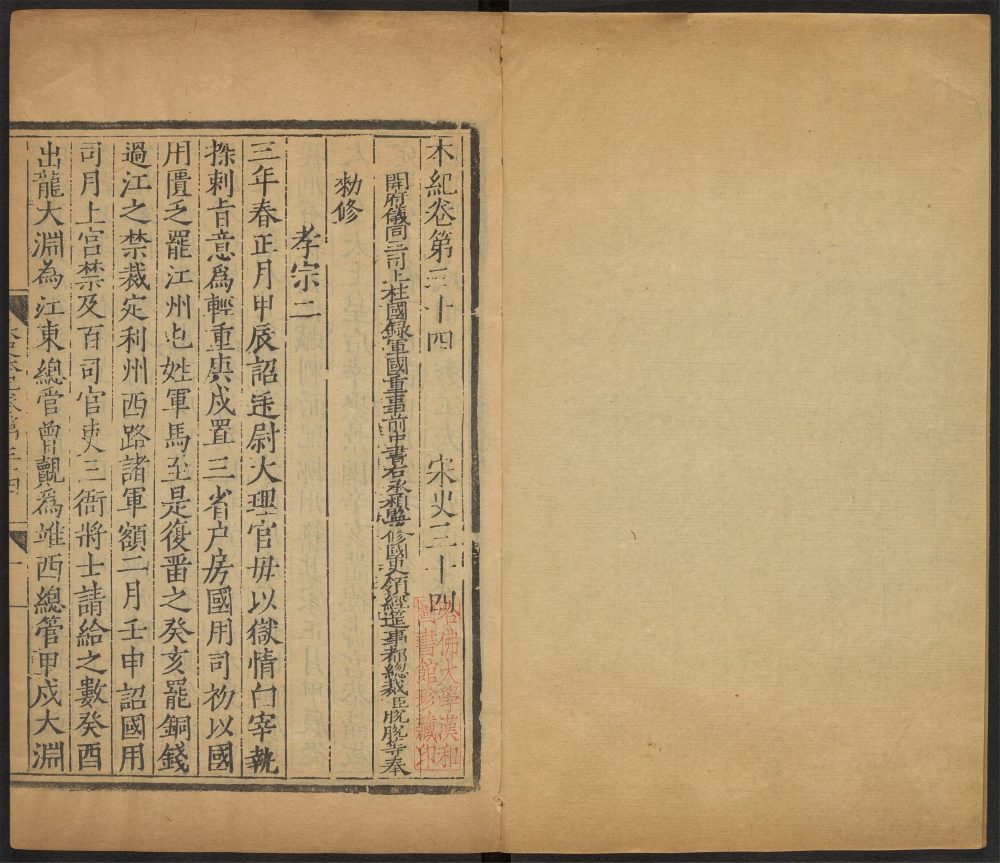 本紀卷第三十四　宋史三十四
開府儀同三司上柱國錄軍國重事前中書右丞相監修國史領經筵事都總裁臣脫脫等奉
勑修
孝宗二
三年春正月甲辰詔廷尉大理官毋以獄情白宰執
探刺旨意爲輕重庚戌置三省户房國用司初以國
用匱乏罷江州屯姓軍馬至是復畱之癸亥罷銅錢
過江之禁裁定利州西路諸軍額二月壬申詔國用
司月上宫禁及百司官吏三衙將士請給之數癸酉
出龍大淵為江東總管曾觀爲淮西總管甲戌大淵
哈佛大學漢和
圖書館珍藏印